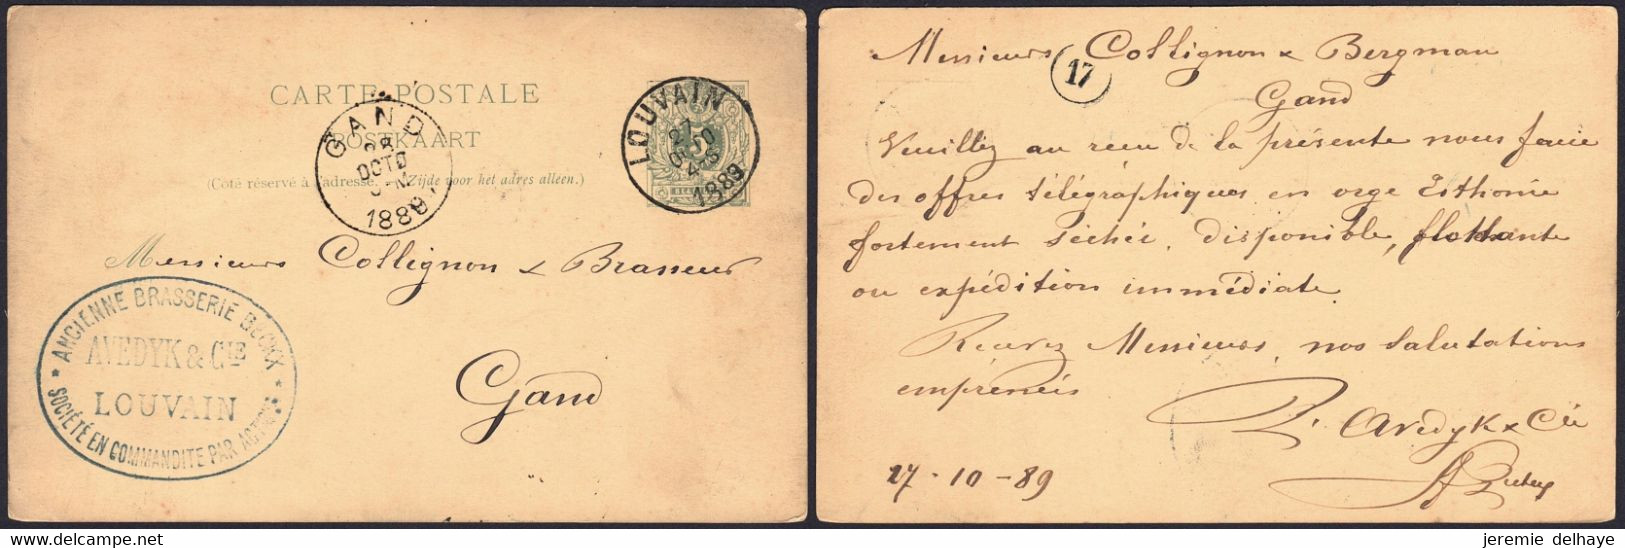 CARTE POSTALE
POSTKAART
(Côté réservé à l'adresse. — Zijde voor het adres alleen.)
GAND
28
OCTO
1889
LOUVAIN
27
OCTO
1889
5
Messieurs Collignon & Brasseur
Gand
* ANCIENNE BRASSERIE BECKX *
AVEDYK & CIE
LOUVAIN
SOCIÉTÉ EN COMMANDITE PAR ACTIONS
Messieurs Collignon & Bergman
17
Gand
Veuillez au reçu de la présente nous faire
des offres télégraphiques en orge Esthonie
fortement séchée, disponible, flottante
ou expédition immédiate.
Recevez Messieurs, nos salutations
empressées
P. Avedyk & Cie
27-10-89
jeremie delhaye